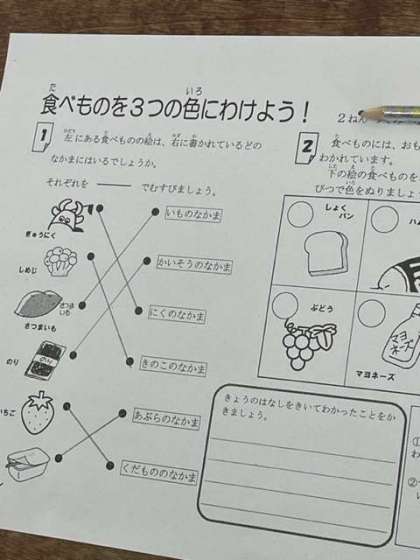 食べものを3つの色にわけよう！
2ねん
1
左にある食べものの絵は、右に書かれているどの
なかまにはいるでしょうか。
それぞれを ――― でむすびましょう。
ぎゅうにく
しめじ
さつまいも
さつまいも
のり
いちご
いものなかま
かいそうのなかま
にくのなかま
きのこのなかま
あぶらのなかま
くだもののなかま
2
食べものには、おも
わかれています。
下の絵の食べものを
ぴつで色をぬりましょ
しょく
パン
ぶどう
マヨネーズ
マヨネーズ
きょうのはなしをきいてわかったことをか
きましょう。
①
②